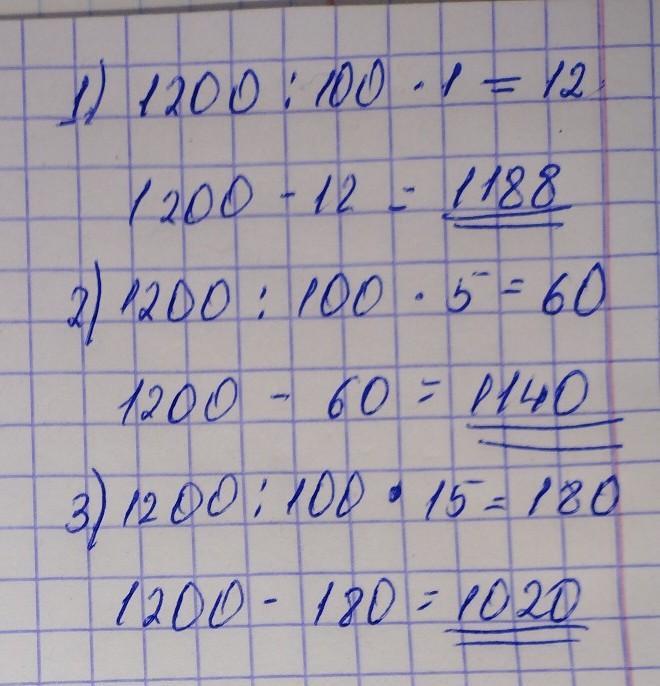 1) 1200 : 100 · 1 = 12
1200 - 12 = 1188
2) 1200 : 100 · 5 = 60
1200 - 60 = 1140
3) 1200 : 100 · 15 = 180
1200 - 180 = 1020